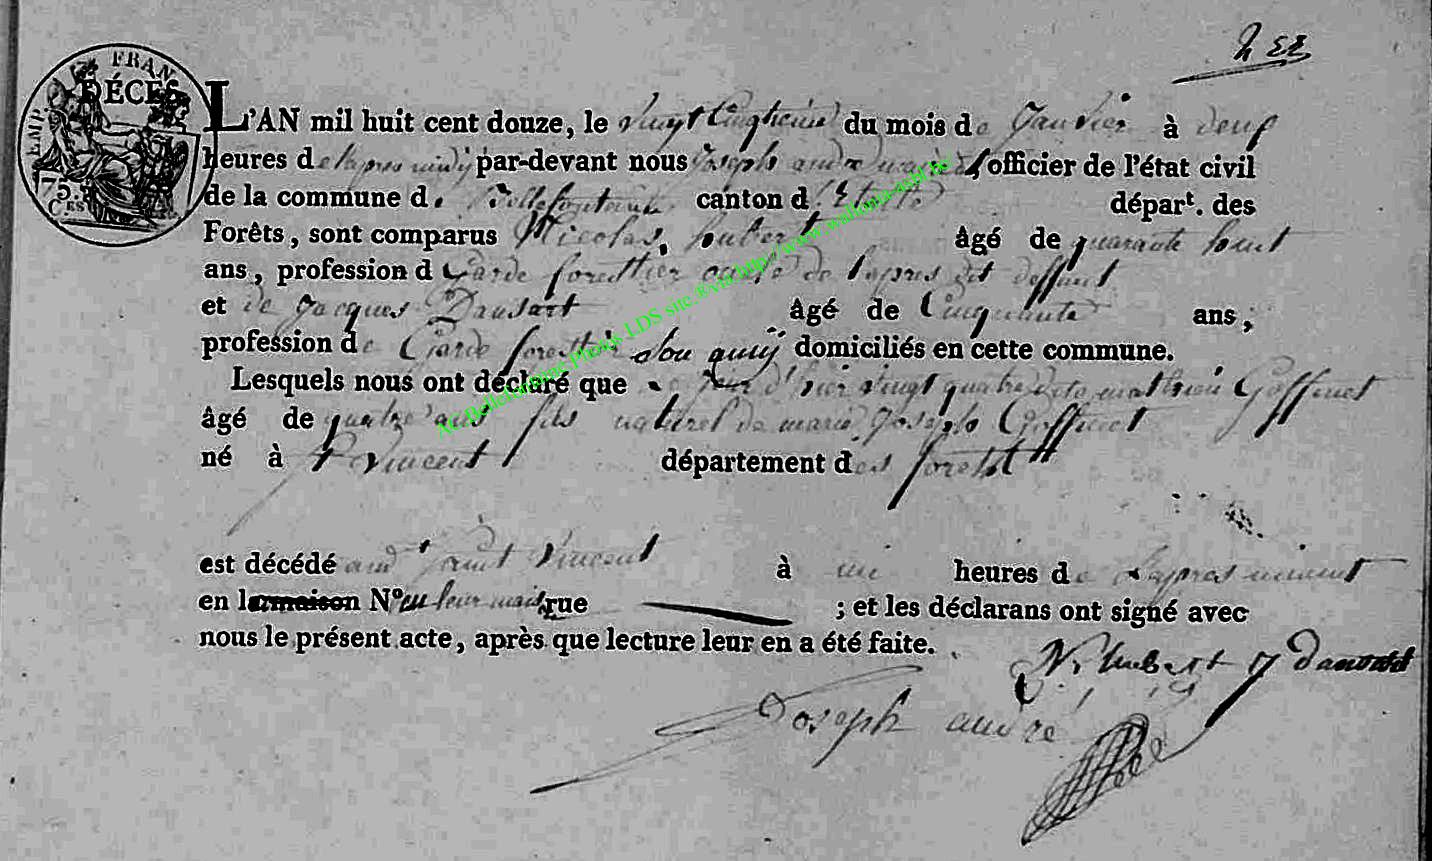 2
FRAN
EMP.
75.
CES
DÉCÈS
L'AN mil huit cent douze, le vingt cinqheime du mois de Janvier à deux
heures de lapres midy par-devant nous Joseph andre maire L'officier de l'état civil
de la commune d. Bellefontaine canton d'Etalle départ. des
Forêts, sont comparus Nicolas hubert âgé de quarante huit
ans, profession d Garde forestier de l'apres dit deffunt
et de Jacques Dansart âgé de Cinquante ans,
profession de Garde forestier domiciliés en cette commune.
Lesquels nous ont déclaré que le jour d'hier vingt quatre dete mathieu Goffinet
âgé de quatre ans fils naturel de marie Joseph Goffinet
né à St Vincent département des forest
est décédé audt saint Vincent à un heures de L'apres minuit
en la maison N° en leur mais rue ; et les déclarans ont signé avec
nous le présent acte, après que lecture leur en a été faite.
N. hubert J dansart
Joseph andre
AC Bellefontaine Photos LDS site ®via http://www.wallonia-asbl.be/